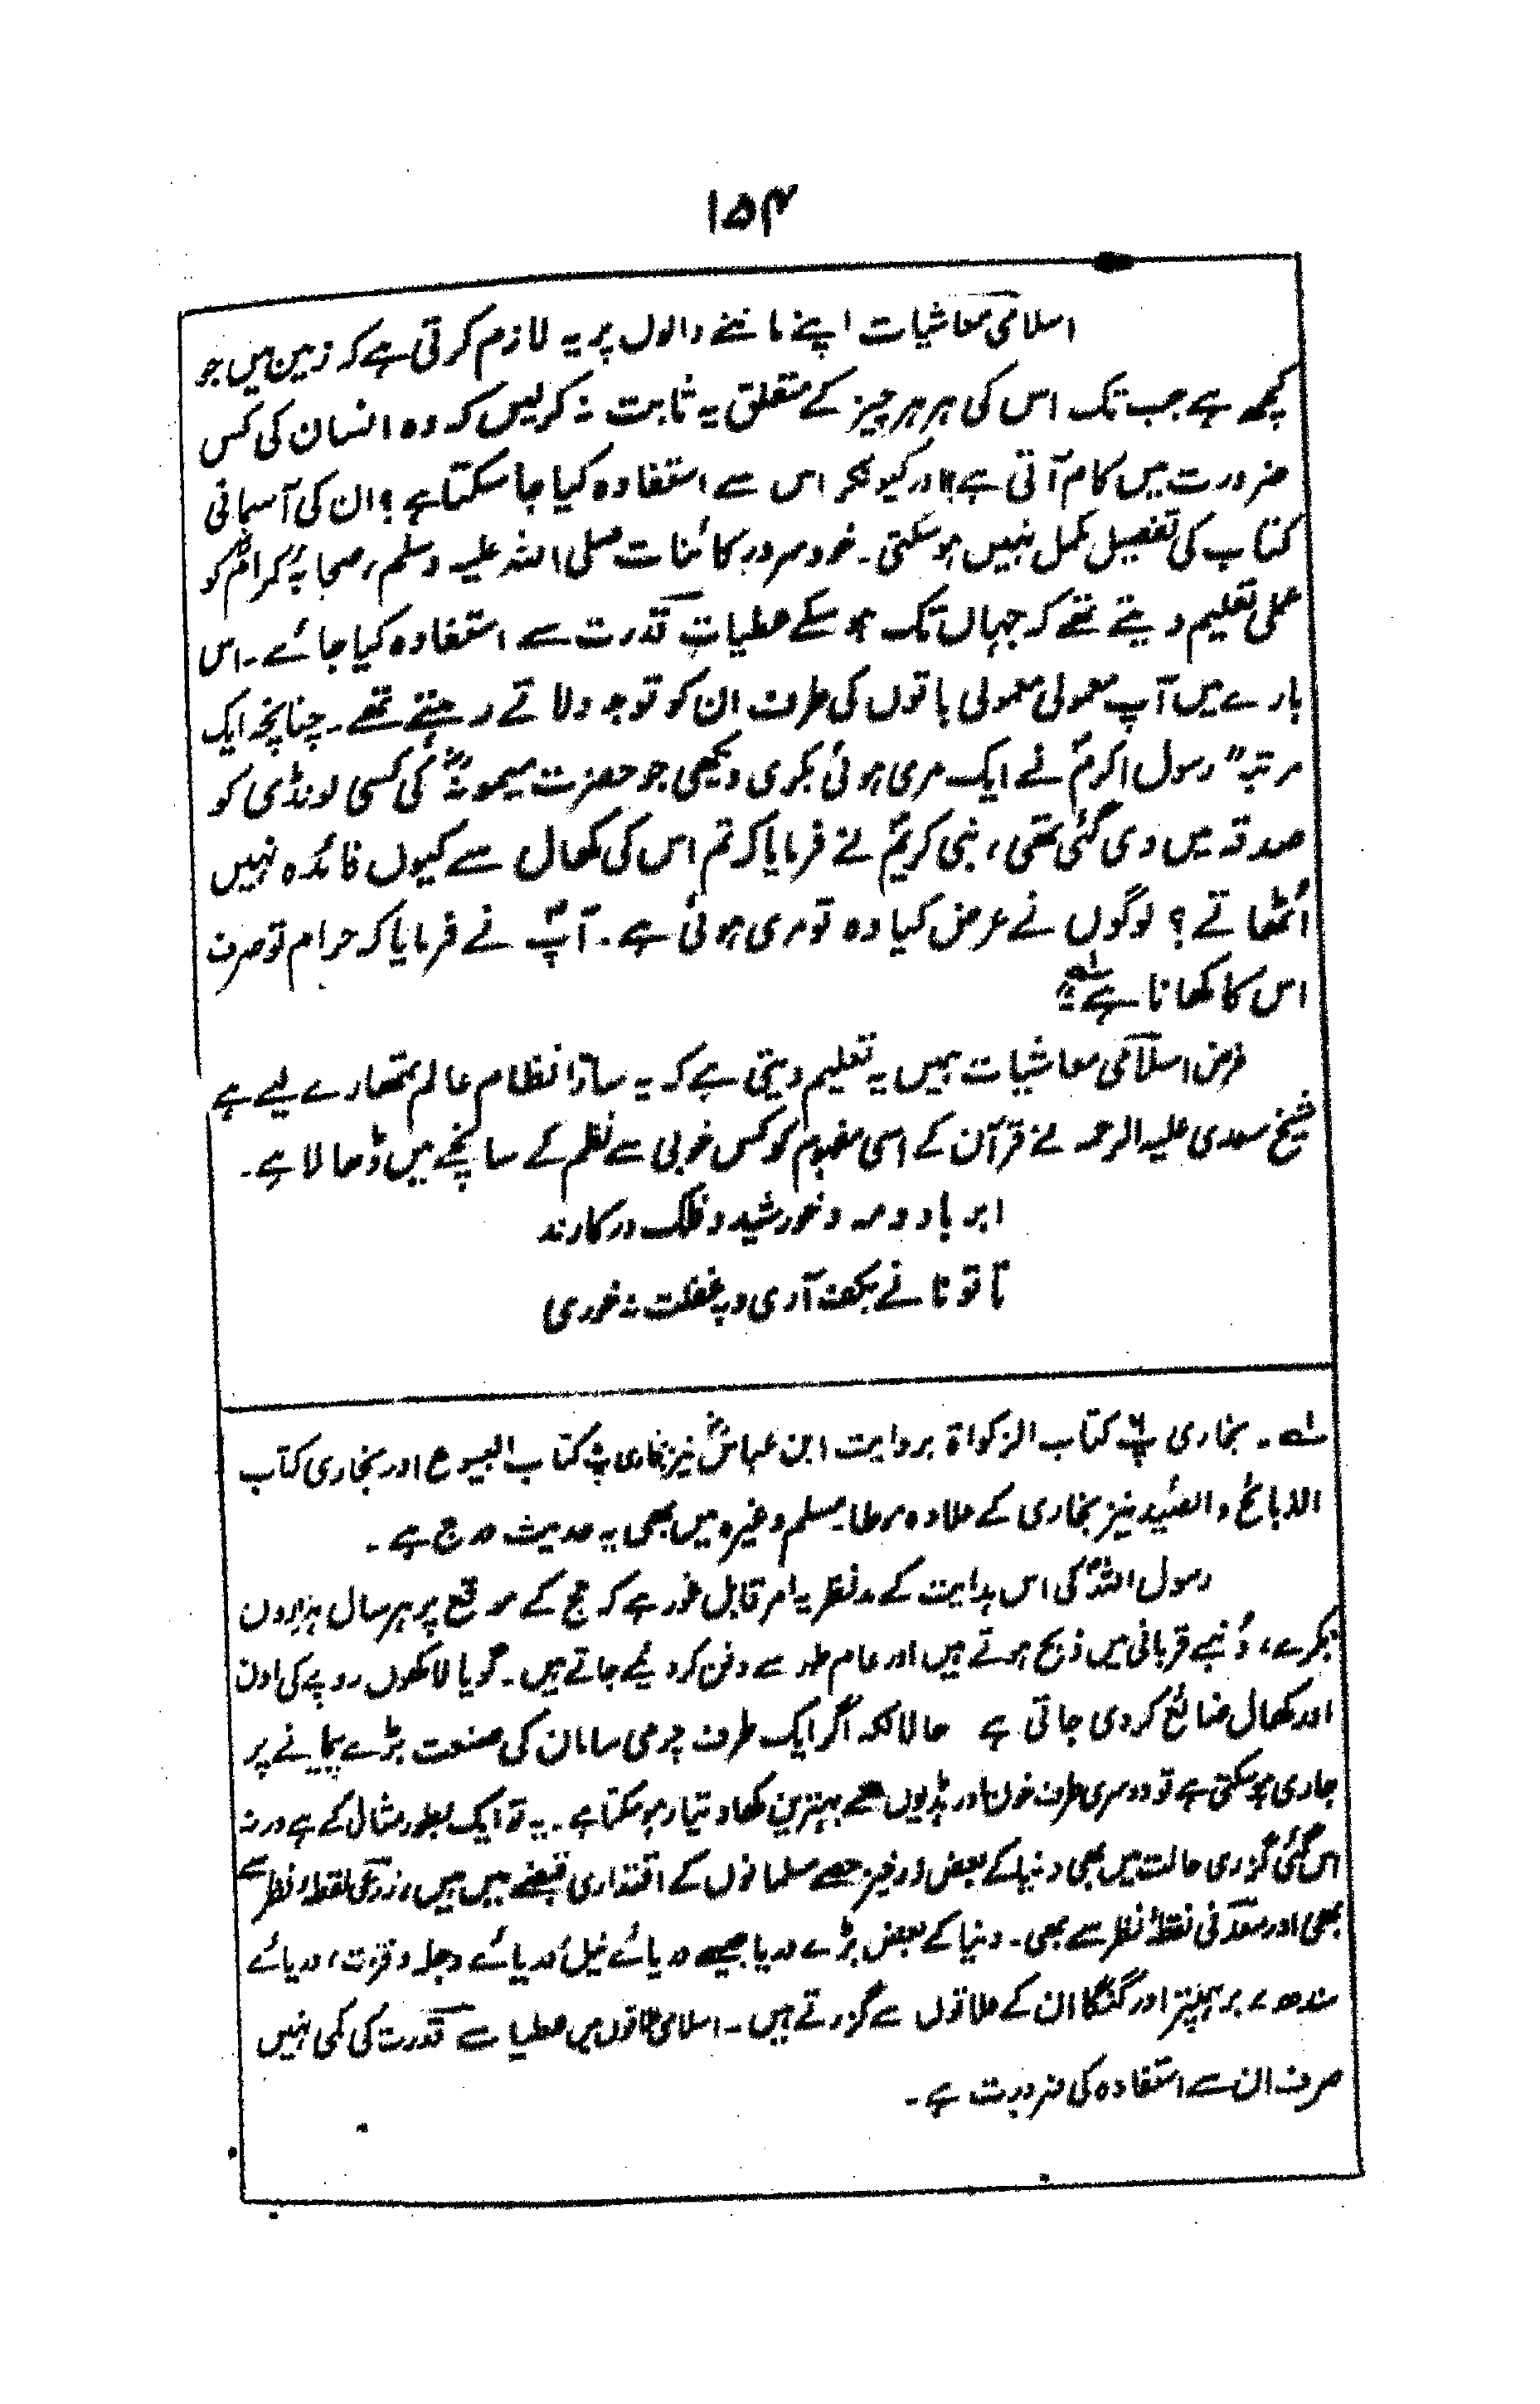 ۱۵۴
اسلامی معاشیات اپنے ماننے والوں پر یہ لازم کرتی ہے کہ زمین میں جو
کچھ ہے جب تک اس کی ہر ہر چیز کے متعلق یہ ثابت نہ کرلیں کہ وہ انسان کی کس
ضرورت میں کام آتی ہے؟ اور کیونکر اس سے استفادہ کیا جا سکتا ہے؟ ان کی آسمانی
کتاب کی تفصیل مکمل نہیں ہوسکتی۔ خود سرور کائنات صلی اللہ علیہ وسلم، صحابہ کرامؓ کو
عملی تعلیم دیتے تھے کہ جہاں تک ہو سکے عطیاتِ قدرت سے استفادہ کیا جائے۔ اس
بارے میں آپ معمولی معمولی باتوں کی طرف ان کو توجہ دلاتے رہتے تھے۔ چنانچہ ایک
مرتبہ "رسول اکرمؐ نے ایک مری ہوئی بکری دیکھی جو حضرت میمونہؓ کی کسی لونڈی کو
صدقہ میں دی گئی تھی، نبی کریمؐ نے فرمایا کہ تم اس کی کھال سے کیوں فائدہ نہیں
اُٹھاتے؟ لوگوں نے عرض کیا وہ تو مری ہوئی ہے۔ آپؐ نے فرمایا کہ حرام تو صرف
اس کا کھانا ہے"۔ لہ
غرض اسلامی معاشیات ہمیں یہ تعلیم دیتی ہے کہ یہ سارا نظام عالم تمھارے لیے ہے
شیخ سعدی علیہ الرحمہ نے قرآن کے اسی مفہوم کو کس خوبی سے نظم کے سانچے میں ڈھالا ہے۔
ابر باد و مہ و خورشید و فلک در کارند
تا تو نانے بکف آری و بہ غفلت نہ خوری
لہ۔ بخاری پ کتاب الزکواۃ بروایت ابن عباسؓ نیز بخاری پ کتاب البیوع اور بخاری کتاب
الذبائح و الصید نیز بخاری کے علاوہ موطا۔ مسلم وغیرہ میں بھی یہ حدیث درج ہے۔
رسول اللہؐ کی اس ہدایت کے مدنظر یہ امر قابل غور ہے کہ حج کے موقع پر ہر سال ہزاروں
بکرے، دُنبے قربانی میں ذبح ہوتے ہیں اور عام طور سے دفن کر دئیے جاتے ہیں۔ گویا لاکھوں روپے کی اون
اور کھال ضائع کردی جاتی ہے حالانکہ اگر ایک طرف چرمی سامان کی صنعت بڑے پیمانے پر
جاری ہوسکتی ہے تو دوسری طرف خون اور ہڈیوں سے بہترین کھاد تیار ہوسکتا ہے۔ یہ تو ایک بطور مثال کے ہے ورنہ
اس گئی گزری حالت میں بھی دنیا کے بعض زرخیز حصے مسلمانوں کے اقتداری قبضے میں ہیں، زرعی نقطۂ نظر سے
بھی اور معدنی نقطۂ نظر سے بھی۔ دنیا کے بعض بڑے دریا جیسے دریائے نیل، دریائے دجلہ و فرات، دریائے
سندھ، برہمپتر اور گنگا ان کے علاقوں سے گزرتے ہیں۔ اسلامی علاقوں میں عطیات قدرت کی کمی نہیں
صرف ان سے استفادہ کی ضرورت ہے۔